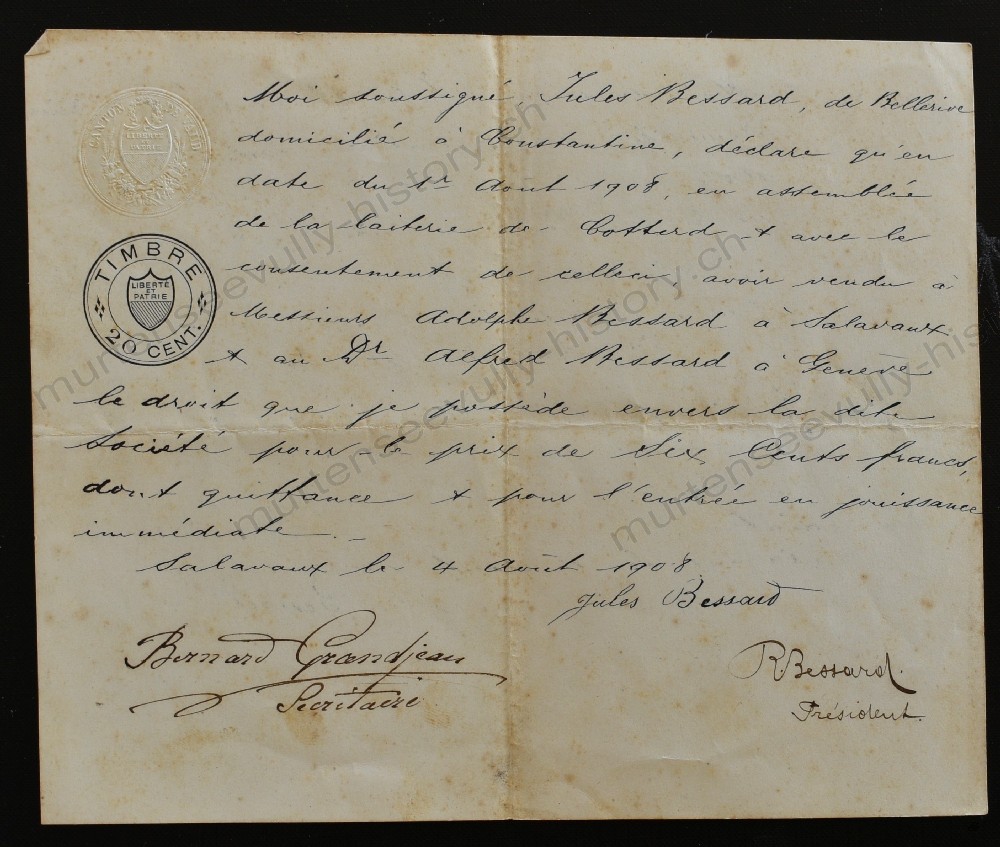 CANTON DE VAUD
LIBERTÉ
ET
PATRIE
TIMBRE
LIBERTÉ
ET
PATRIE
20 CENT.
Moi soussigné Jules Bessard, de Bellerive
domicilié à Constantine, déclare qu'en
date du 1er Aout 1908, en assemblée
de la laiterie de Cotterd + avec le
consentement de celleci, avoir vendu à
Messieurs Adolphe Bessard à Salavaux
+ au Dr Alfred Bessard à Genève
le droit que je possède envers la dite
Société pour le prix de Six Cents francs,
dont quittance + pour l'entrée en jouissance
immédiate.-
Salavaux le 4 Août 1908
Jules Bessard
Bernard Grandjean
Secrétaire
R. Bessard.
Président.
murtenseevully-history.ch
murtenseevully-history.ch
murtenseevully-history.ch